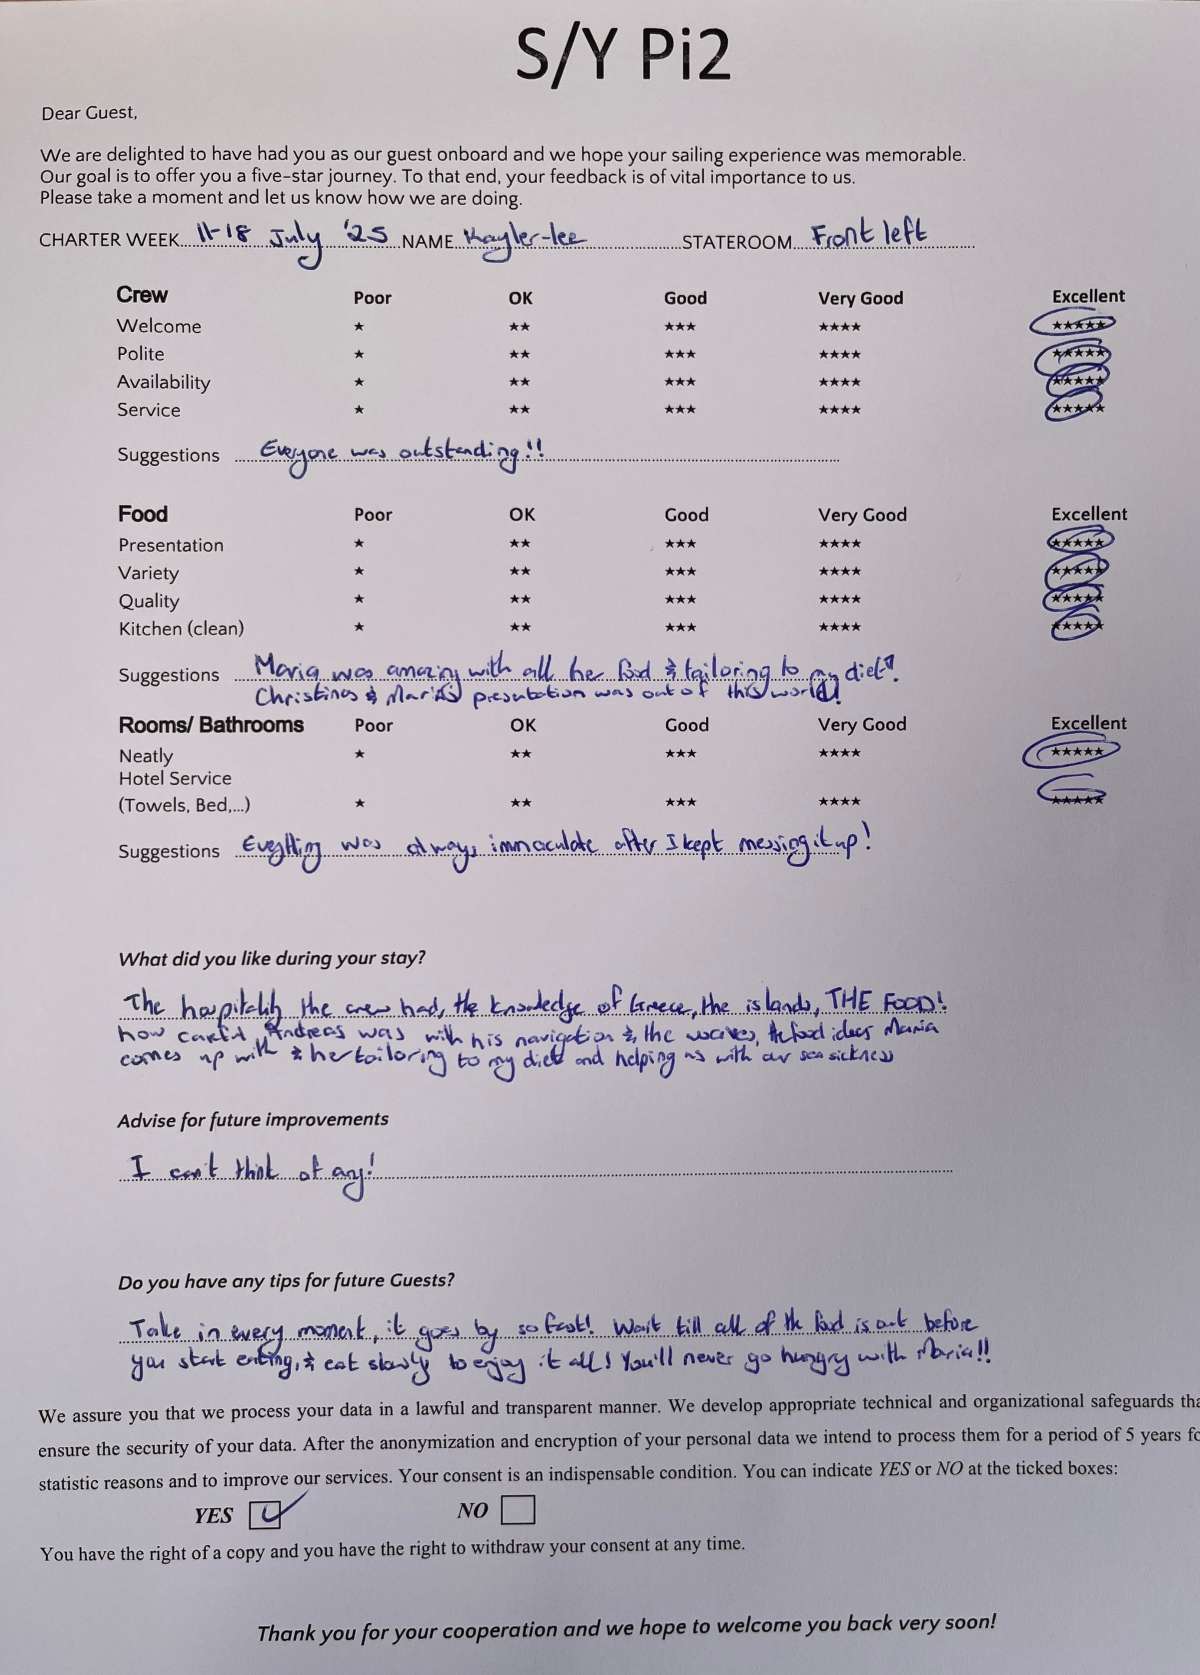 S/Y Pi2
Dear Guest,
We are delighted to have had you as our guest onboard and we hope your sailing experience was memorable.
Our goal is to offer you a five-star journey. To that end, your feedback is of vital importance to us.
Please take a moment and let us know how we are doing.
CHARTER WEEK 11-18 July '25 NAME Kayler-lee STATEROOM Front left
Crew Poor OK Good Very Good Excellent
Welcome ★ ★★ ★★★ ★★★★ ★★★★★
Polite ★ ★★ ★★★ ★★★★ ★★★★★
Availability ★ ★★ ★★★ ★★★★ ★★★★★
Service ★ ★★ ★★★ ★★★★ ★★★★★
Suggestions Everyone was outstanding!!
Food Poor OK Good Very Good Excellent
Presentation ★ ★★ ★★★ ★★★★ ★★★★★
Variety ★ ★★ ★★★ ★★★★ ★★★★★
Quality ★ ★★ ★★★ ★★★★ ★★★★★
Kitchen (clean) ★ ★★ ★★★ ★★★★ ★★★★★
Suggestions Maria was amazing with all her food & tailoring to my diet!
Christinas & Maria's presentation was out of this world!
Rooms/ Bathrooms Poor OK Good Very Good Excellent
Neatly ★ ★★ ★★★ ★★★★ ★★★★★
Hotel Service
(Towels, Bed,...) ★ ★★ ★★★ ★★★★ ★★★★★
Suggestions Everything was always immaculate after I kept messing it up!
What did you like during your stay?
The hospitality the crew had, the knowledge of Greece, the islands, THE FOOD!
how careful Andreas was with his navigation & the waves, the food ideas Maria
comes up with & her tailoring to my diet and helping us with our sea sickness
Advise for future improvements
I can't think of any!
Do you have any tips for future Guests?
Take in every moment, it goes by so fast! Wait till all of the food is out before
you start eating, & eat slowly to enjoy it all! You'll never go hungry with Maria!!
We assure you that we process your data in a lawful and transparent manner. We develop appropriate technical and organizational safeguards tha
ensure the security of your data. After the anonymization and encryption of your personal data we intend to process them for a period of 5 years fo
statistic reasons and to improve our services. Your consent is an indispensable condition. You can indicate YES or NO at the ticked boxes:
YES ☑ NO ☐
You have the right of a copy and you have the right to withdraw your consent at any time.
Thank you for your cooperation and we hope to welcome you back very soon!